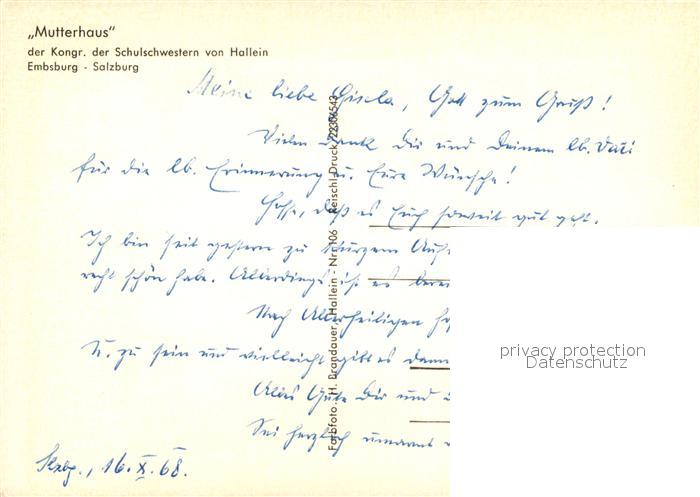 „Mutterhaus"
der Kongr. der Schulschwestern von Hallein
Embsburg - Salzburg
Meine liebe Gisela, Gott zum Gruß!
Vielen Dank Dir und Deinem lb. Vati
für die lb. Erinnerung u. Eure Wünsche!
Hoffe, daß es Euch soweit gut geht.
Ich bin seit gestern zu kurzem Auf
recht schön habe. Allerdings ist es berei
Nach Allerheiligen ho
U. zu sein und vielleicht gibt es dann
Alles Gute Dir und
Sei herzlich umarmt
Slzbg., 16. X. 68.
Farbfoto: H. Brandauer, Hallein - Nr. 106 Reischl-Druck 22306543
privacy protection
Datenschutz